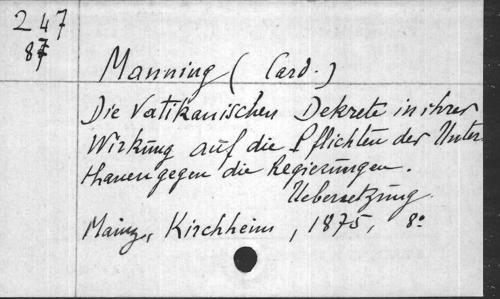 247
87
Manning (Card.)
Die Vatikanischen Dekrete in ihrer
Wirkung auf die Pflichten der Unter-
thanen gegen die Regierungen.
Uebersetzung
Mainz, Kirchheim, 1875, 8º